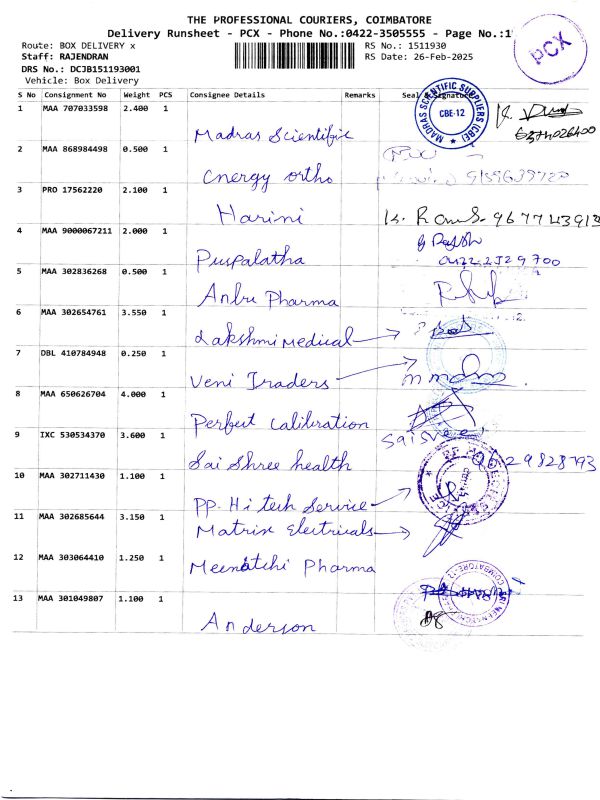 THE PROFESSIONAL COURIERS, COIMBATORE
Delivery Runsheet - PCX - Phone No.:0422-3505555 - Page No.:1
Route: BOX DELIVERY x
RS No.: 1511930
PCX
Staff: RAJENDRAN
RS Date: 26-Feb-2025
DRS No.: DCJB151193001
Vehicle: Box Delivery
S No Consignment No Weight PCS Consignee Details Remarks Seal & Signature
1 MAA 707033598 2.400 1 Madras Scientific
MADRAS SCIENTIFIC SUPPLIERS (CBE) CBE-12
2 MAA 868984498 0.500 1 Cnergy ortho
3 PRO 17562220 2.100 1 Harini
4 MAA 9000067211 2.000 1 Puspalatha
5 MAA 302836268 0.500 1 Anbu Pharma
6 MAA 302654761 3.550 1 Lakshmi Medical
7 DBL 410784948 0.250 1 Veni Traders
8 MAA 650626704 4.000 1 Perfect Calibration
9 IXC 530534370 3.600 1 Sai Shree health
10 MAA 302711430 1.100 1 PP. Hi tech Service
11 MAA 302685644 3.150 1 Matrix Electricals
12 MAA 303064410 1.250 1 Meenatchi Pharma
13 MAA 301049807 1.100 1 Anderson